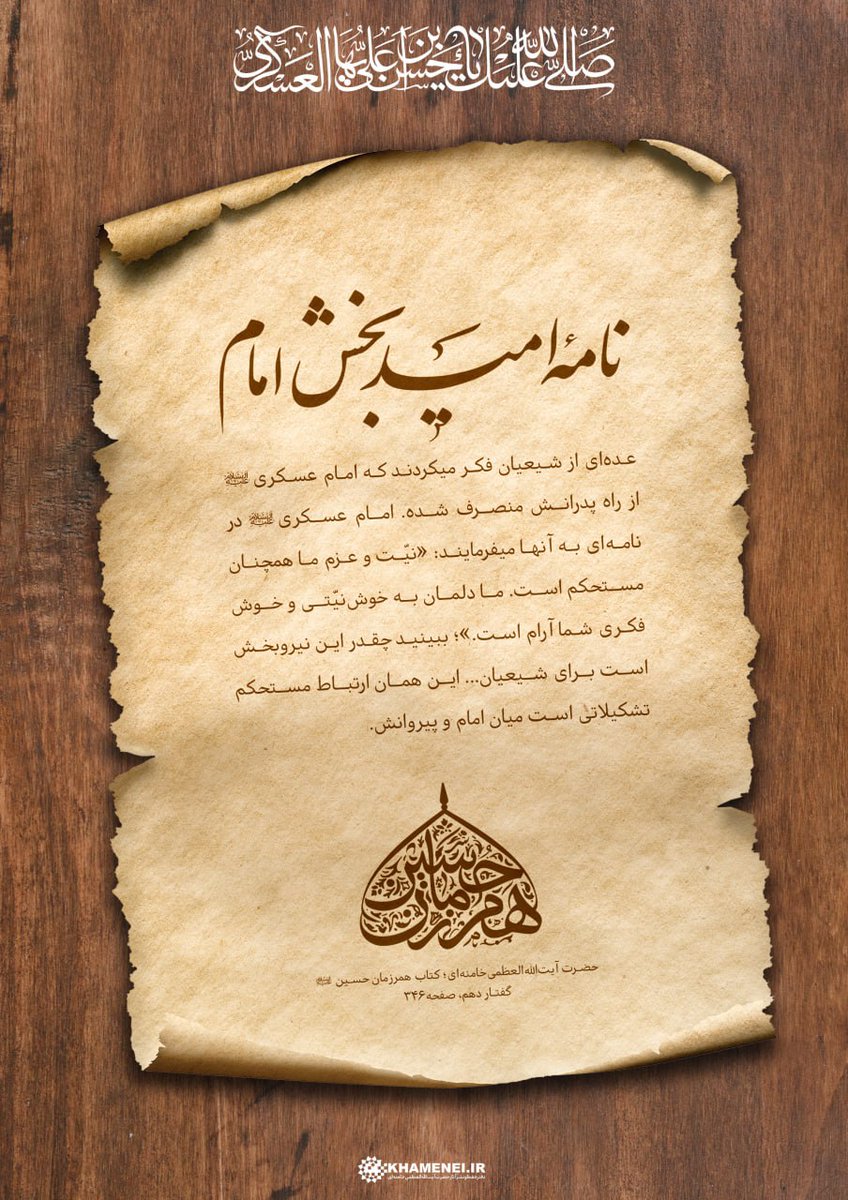 صلی الله علیک یا حسن بن علی ایها العسکری
نامهٔ امیدبخش امام
عده‌ای از شیعیان فکر میکردند که امام عسکری علیه‌السلام
از راه پدرانش منصرف شده. امام عسکری علیه‌السلام در
نامه‌ای به آنها میفرمایند: «نیّت و عزم ما همچنان
مستحکم است. ما دلمان به خوش‌نیّتی و خوش
فکری شما آرام است.»؛ ببینید چقدر این نیروبخش
است برای شیعیان... این همان ارتباط مستحکم
تشکیلاتی است میان امام و پیروانش.
هم‌رزمان حسین
حضرت آیت‌الله‌العظمی خامنه‌ای؛ کتاب همرزمان حسین علیه‌السلام
گفتار دهم، صفحه ۳۴۶
KHAMENEI.IR
دفتر حفظ و نشر آثار حضرت آیت‌الله‌العظمی خامنه‌ای